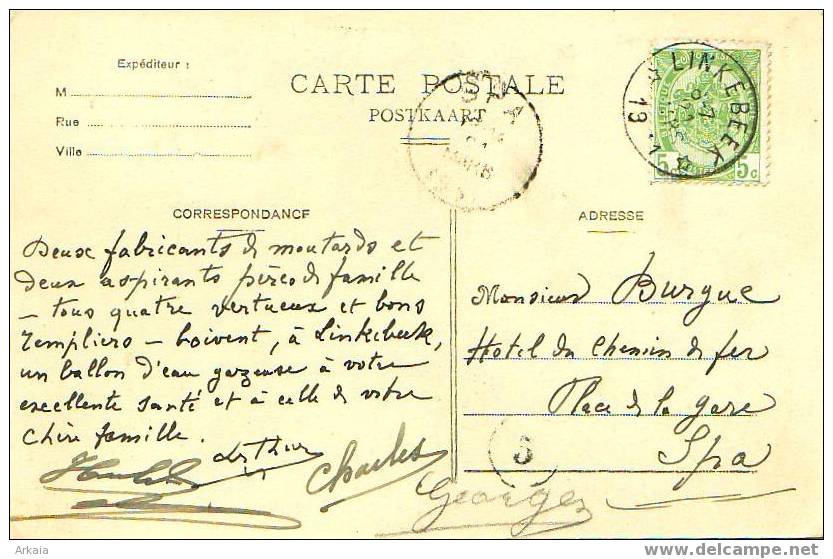 Expéditeur :
M
Rue
Ville
CARTE POSTALE
POSTKAART
SPA
LINKEBEEK
5c 5c
CORRESPONDANCE
ADRESSE
Deux fabricants de moutards et
deux aspirants pères de famille
— tous quatre vertueux et bons
templiers — boivent, à Linkebeek,
un ballon d'eau gazeuse à votre
excellente santé et à celle de votre
chère famille.
Arthur
Charles
Georges
Monsieur Burgue
Hotel du Chemin de fer
Place de la gare
Spa
Arkaia
www.delcampe.net